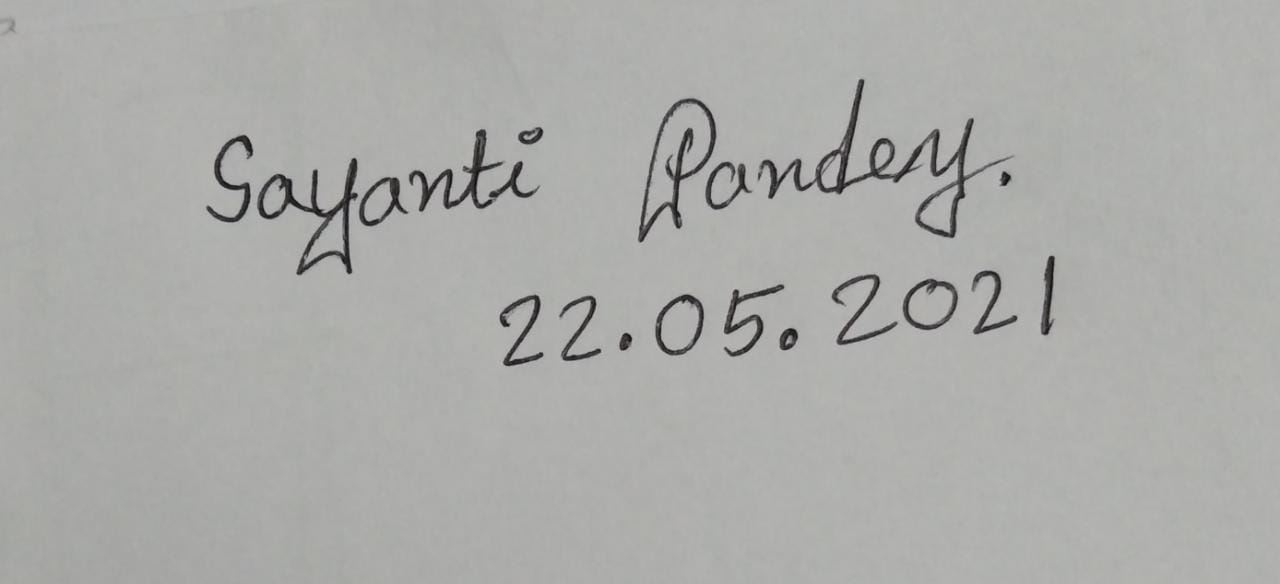 Sayanti Pandey.
22.05.2021